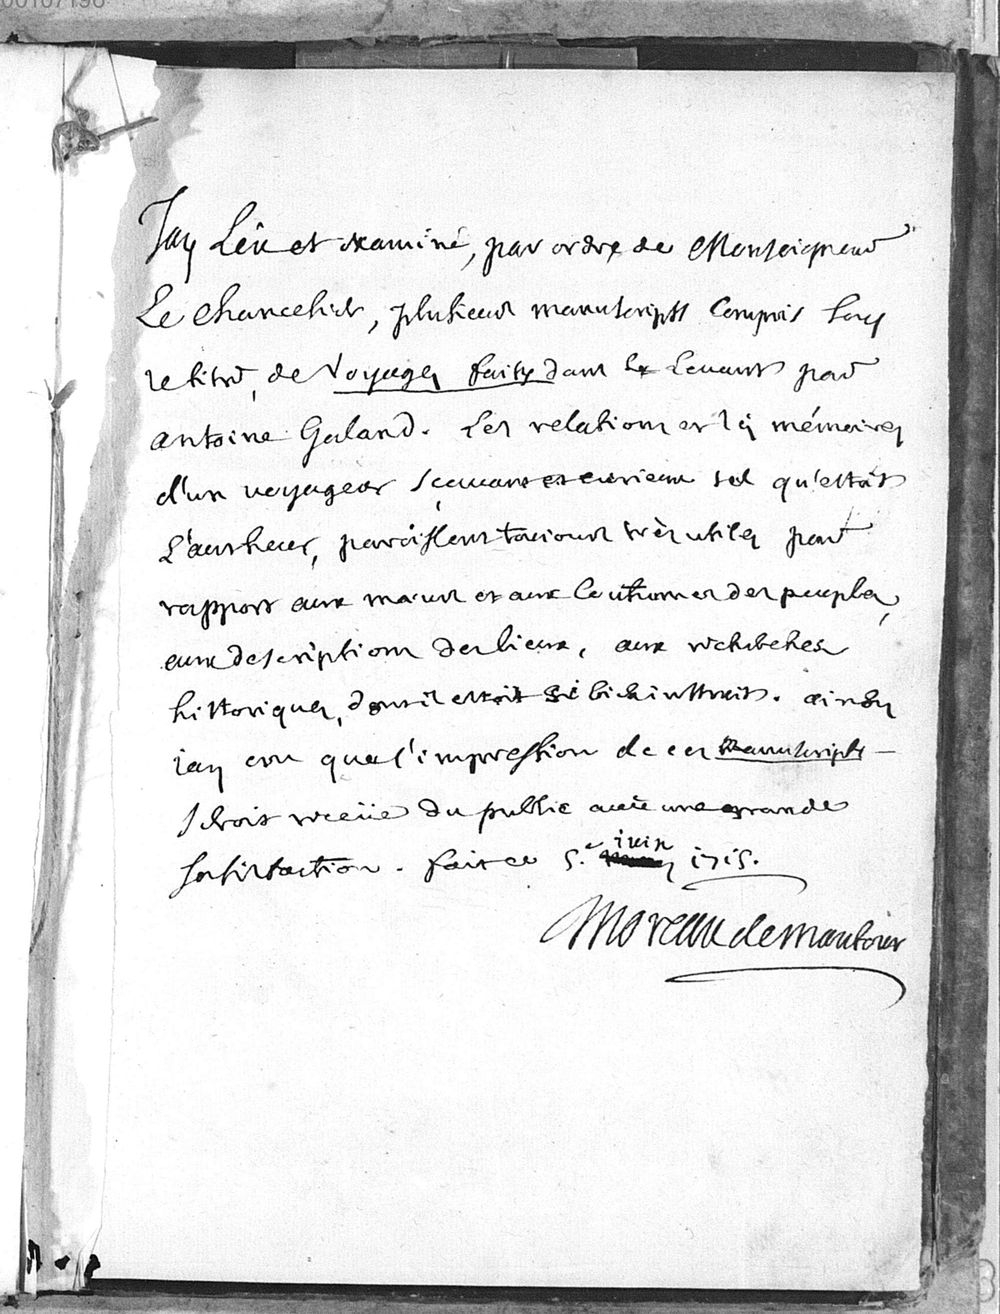 00107196
J'ay Leu et examiné, par ordre de Monseigneur
Le Chancelier, plusieurs manuscripts compris sous
le titre, de Voyages faits dans le Levant par
antoine Galand. Les relations et les mémoires
d'un voyageur sçavant et curieux tel qu'estoit
L'autheur, paroissent toujours très utiles par
rapport aux mœurs et aux coutumes des peuples,
aux descriptions des lieux, aux recherches
historiques, dont il estoit si bien instruit. ainsy
i'ay cru que l'impression de ces manuscripts
seroit receüe du public avec une grande
satisfaction. fait ce 5.e juin 1715.
Moreau de Mautour
3